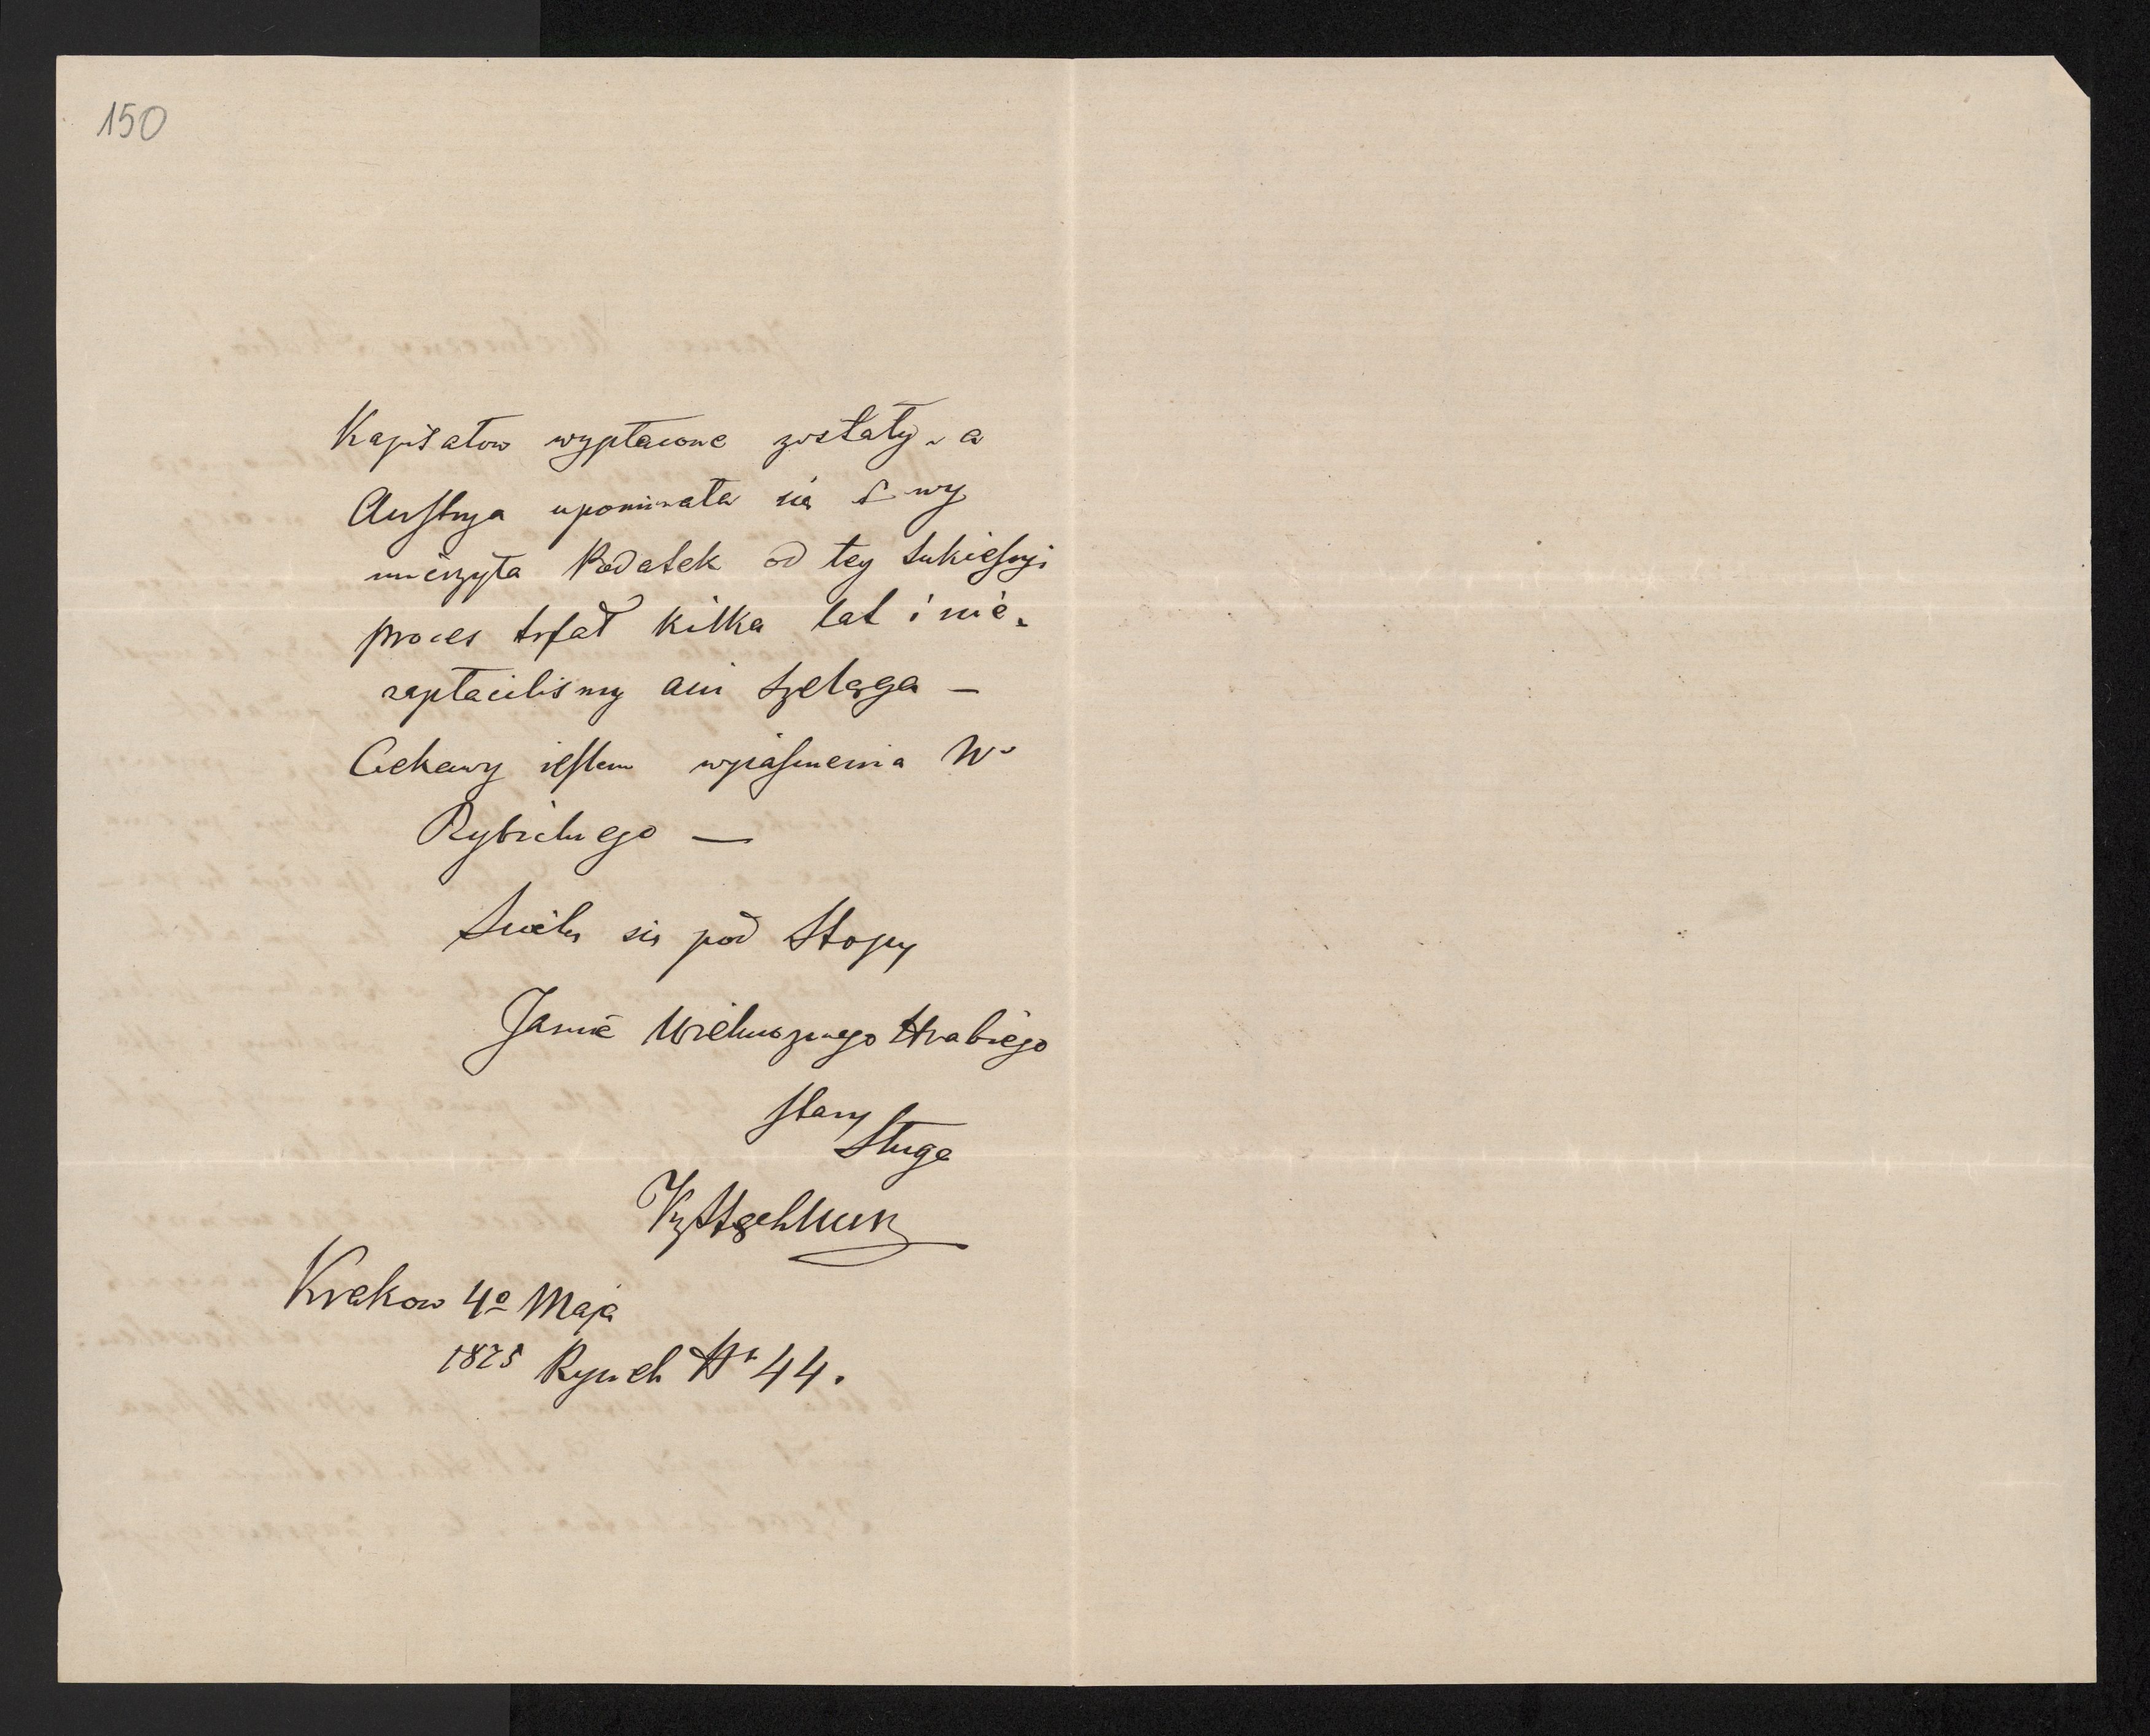 150
Kapitałow wypłacone zostały - a
Austrya upominała się i wy
mierzyła Podatek od tey sukiessyi
proces trfał kilka lat i nie.
zapłacilismy ani szeląga —
Ciekawy iestem wyiasnienia Wo
Rybickiego —
Sciele sie pod Stopy
Jasnie Wielmoznego Hrabiego
stary
Sługa
Krakow 4o Maja
1875 Rynek Nr 44.